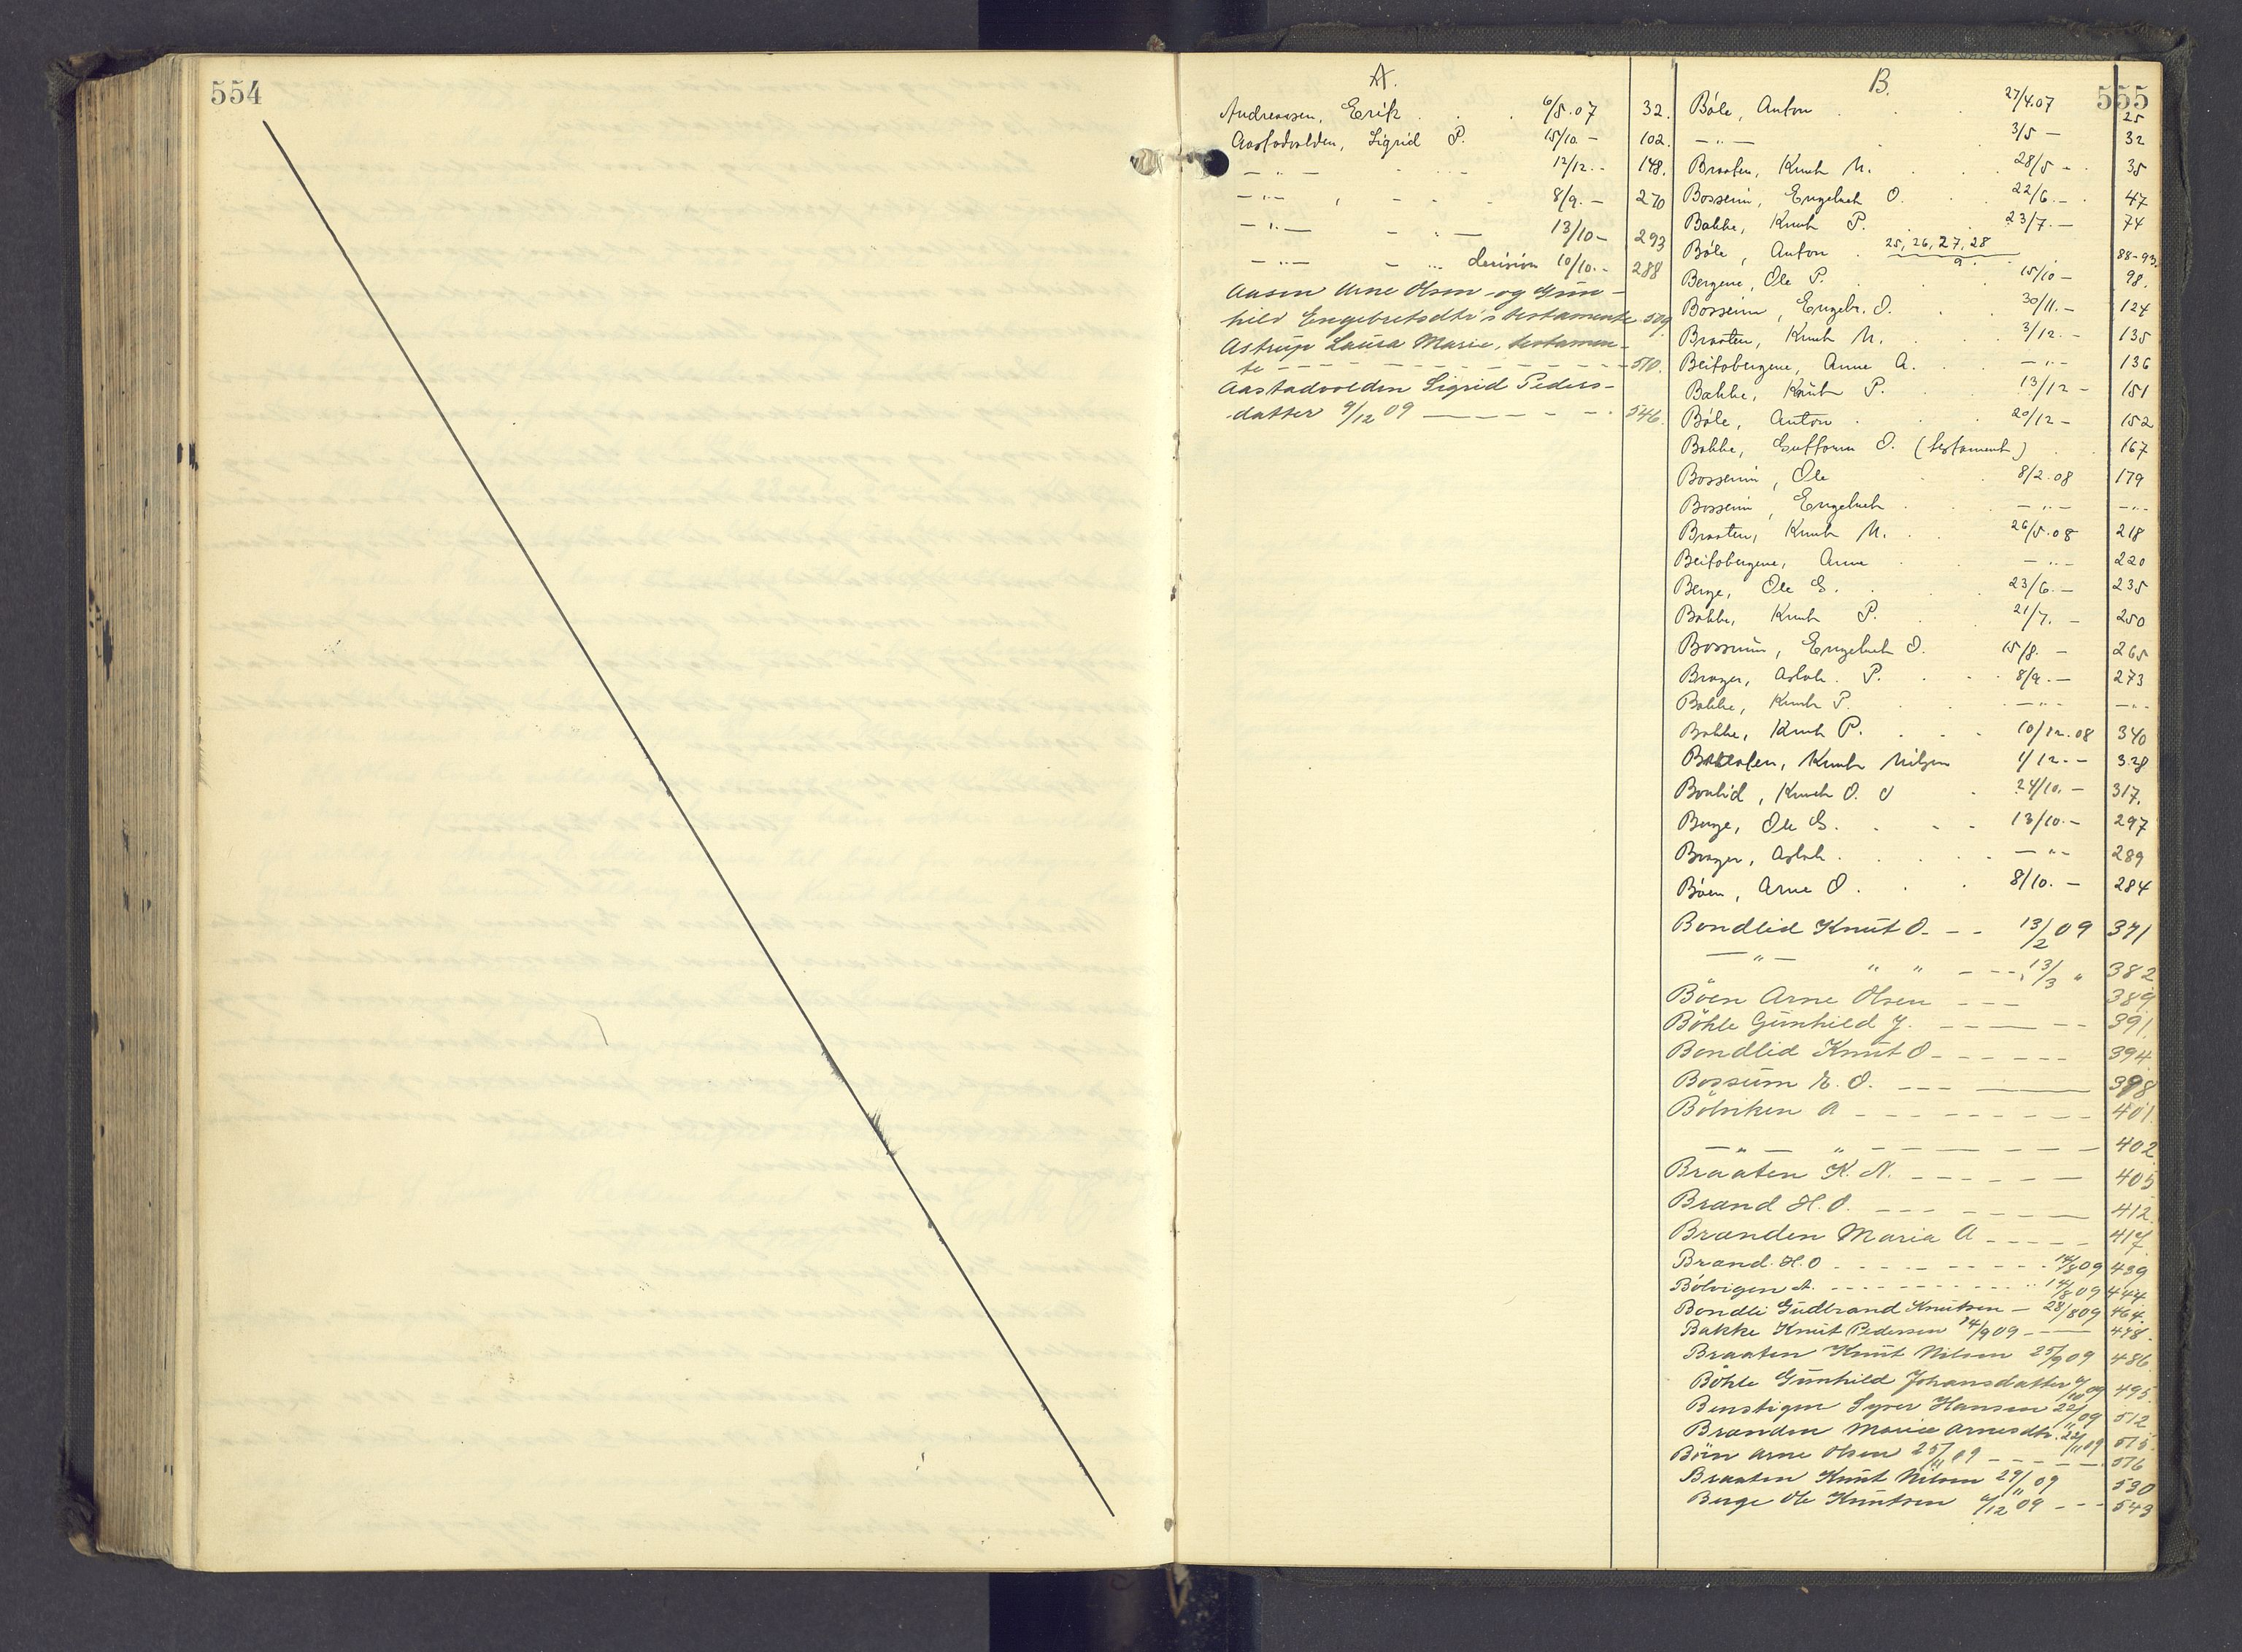 554
555
A.
Andreassen, Erik . . . 6/5.07 32.
Aastadvolden, Sigrid P. 15/10 - 102.
— " — - . . . 12/12.- 148.
— " — , - - . 8/9. - 270
— " — - . — 13/10 - 293
— " — - ... decision 10/10.- 288
Aasen Arne Olsen og Gun-
hild Engebretsdtr's testamente 509.
Astrup Laura Marie, testamen-
te - - - - - - - - - 510.
Aastadvolden Sigrid Peders-
datter 9/12 09 — - - - . 546.
B.
Böle, Anton . . 27/4.07 25
— " — . 3/5 — 32
Braaten, Knut N. . . 28/5 - . 35
Bosseim, Engebret O. . . 22/6.- . 47
Bakke, Knut P. . . 23/7.— 74
Böle, Anton . 25, 26, 27, 28/9 . . 88-93.
Bergene, Ole P. . . 15/10 - 98.
Bosseim, Engebr. O. . . 30/11.- 124
Braaten, Knut N. . . . 3/12.- 135
Beitobergene, Anne A. . . — " - 136
Bakke, Knut P. . . 13/12 - 151
Böle, Anton . . 20/12 - 152
Bakke, Guttorm O. (testament) . . 167
Bosseim, Ole . . 8/2.08 179
Bosseim, Engebret . . — " — — " -
Braaten, Knut N. . . 26/5.08 218
Beitobergene, Anne . . — " - 220
Berge, Ole G. . . . 23/6.— 235
Bakke, Knut P. . . 21/7. - 250
Bosseim, Engebret O. . 15/8. - 265
Brager, Aslak. P. . . . 8/9.— 273
Bakke, Knut P. . . . — " - — " -
Bakke, Knut P. . . . 10/12.08 340
Braaten, Knut Nilsen 1/12.- 328
Bonlid, Knut O. . 24/10.- 317.
Berge, Ole G. . - - 13/10.- 297
Brager, Aslak. . . . . — " - 289
Böen, Arne O. . . 8/10. - 284
Bondlid Knut O. - - 13/2 09 371
— " — " " - - - 13/3 " 382
Böen Arne Olsen - - - 389
Böhle Gunhild J. - - — - - 391
Bondlid Knut O - - - - - - 394
Bossum E. O. - - - — 398
Bölviken A - - - - - - - - - 401.
— " — " - — - — - — - 402
Braaten K. N. - - - - - — 405
Brand H. O. - - - - - — 412.
Branden Maria A - - - - - 417
Brand. H. O - - - - - - - - 14/8 09 439
Bölvigen A. - - - - - - - - - 14/8 09 444
Bondli Gudbrand Knutsen — 28/8 09 464.
Bakke Knut Pedersen 14/9 09 - — 478.
Braaten Knut Nilsen 25/9 09 486
Böhle Gunhild Johansdatter /10 09 495
Benstigen Syver Hansen 22/11 09 512
Branden Marie Arnesdtr. 22/11 09 515
Böen Arne Olsen 25/11 09 - - - - - 516
Braaten Knut Nilsen 29/11 09 530
Berge Ole Knutsen 9/12 09 - - - 543